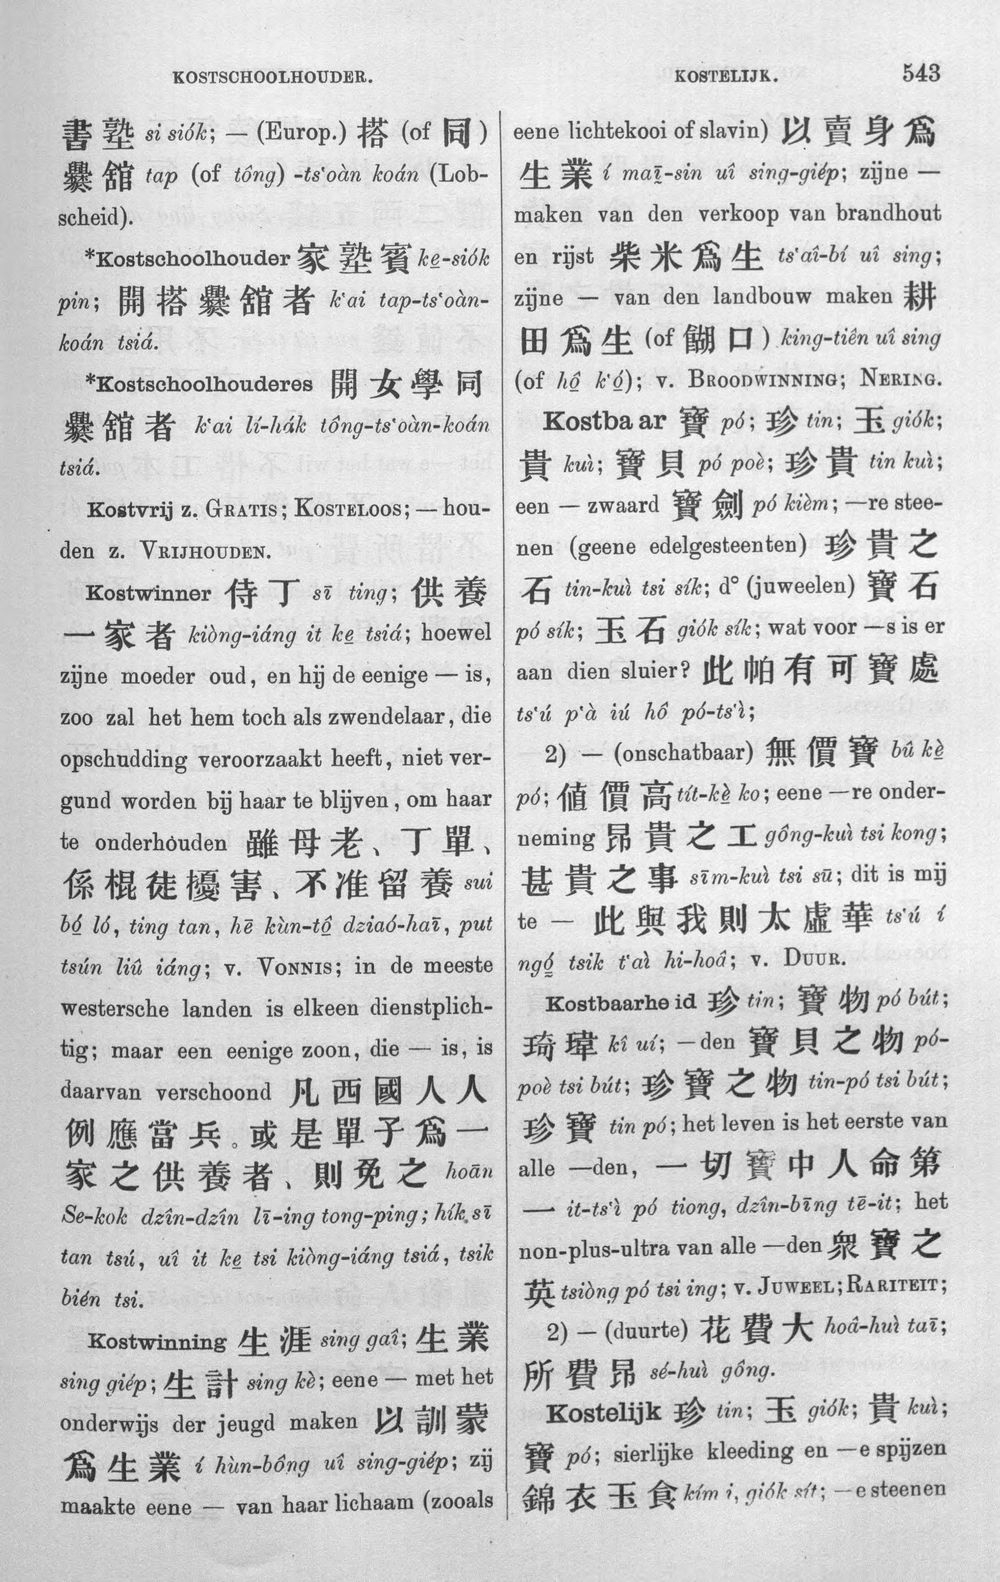 KOSTSCHOOLHOUDER.
KOSTELIJK. 543
書塾 si siók; — (Europ.) 搭 (of 同)
爨舘 tap (of tông) -ts‘oàn koán (Lob-
scheid).
*Kostschoolhouder 家塾賓 ke-siók
pin; 開搭爨舘者 k‘ai tap-ts‘oàn-
koán tsiá.
*Kostschoolhouderes 開女學同
爨舘者 k‘ai lí-hák tông-ts‘oàn-koán
tsiá.
Kostvrij z. GRATIS; KOSTELOOS; — hou-
den z. VRIJHOUDEN.
Kostwinner 侍丁 sī ting; 供養
一家者 kiòng-iáng it ke tsiá; hoewel
zijne moeder oud, en hij de eenige — is,
zoo zal het hem toch als zwendelaar, die
opschudding veroorzaakt heeft, niet ver-
gund worden bij haar te blijven, om haar
te onderhouden 雖母老、丁單、
係棍徒擾害、不准留養 sui
bó ló, ting tan, hē kùn-tô dziaó-haī, put
tsún liû iáng; v. VONNIS; in de meeste
westersche landen is elkeen dienstplich-
tig; maar een eenige zoon, die — is, is
daarvan verschoond 凡西國人人
例應當兵。或是單子爲一
家之供養者、則免之 hoān
Se-kok dzîn-dzîn lī-ing tong-ping; hík sī
tan tsú, uî it ke tsi kiòng-iáng tsiá, tsik
bién tsi.
Kostwinning 生涯 sing gaî; 生業
sing giép; 生計 sing kè; eene — met het
onderwijs der jeugd maken 以訓蒙
爲生業 í hùn-bông uî sing-giép; zij
maakte eene — van haar lichaam (zooals
eene lichtekooi of slavin) 以賣身爲
生業 í maī-sin uî sing-giép; zijne —
maken van den verkoop van brandhout
en rijst 柴米爲生 ts‘aî-bí uî sing;
zijne — van den landbouw maken 耕
田爲生 (of 餬口) king-tiên uî sing
(of hô k‘ó); v. BROODWINNING; NERING.
Kostbaar 寶 pó; 珍 tin; 玉 giók;
貴 kuì; 寶貝 pó poè; 珍貴 tin kuì;
een — zwaard 寶劍 pó kièm; —re stee-
nen (geene edelgesteenten) 珍貴之
石 tin-kuì tsi sík; d° (juweelen) 寶石
pó sík; 玉石 giók sík; wat voor —s is er
aan dien sluier? 此帕有可寶處
ts‘ú p‘à iú hô pó-ts‘ì;
2) — (onschatbaar) 無價寶 bû kè
pó; 値價高 tít-kè ko; eene —re onder-
neming 昂貴之工 gông-kuì tsi kong;
甚貴之事 sīm-kuì tsi sū; dit is mij
te — 此與我則太虛華 ts‘ú í
ngó tsik t‘aì hi-hoâ; v. DUUR.
Kostbaarheid 珍 tin; 寶物 pó bút;
琦瑋 kî uí; —den 寶貝之物 pó-
poè tsi bút; 珍寶之物 tin-pó tsi bút;
珍寶 tin pó; het leven is het eerste van
alle —den, 一切寳中人命第
一 it-ts‘ì pó tiong, dzîn-bīng tē-it; het
non-plus-ultra van alle —den 衆寶之
英 tsiòng pó tsi ing; v. JUWEEL; RARITEIT;
2) — (duurte) 花費大 hoâ-huì taī;
所費昂 sé-huì gông.
Kostelijk 珍 tin; 玉 giók; 貴 kuì;
寶 pó; sierlijke kleeding en —e spijzen
錦衣玉食 kím i, giók sít; —e steenen